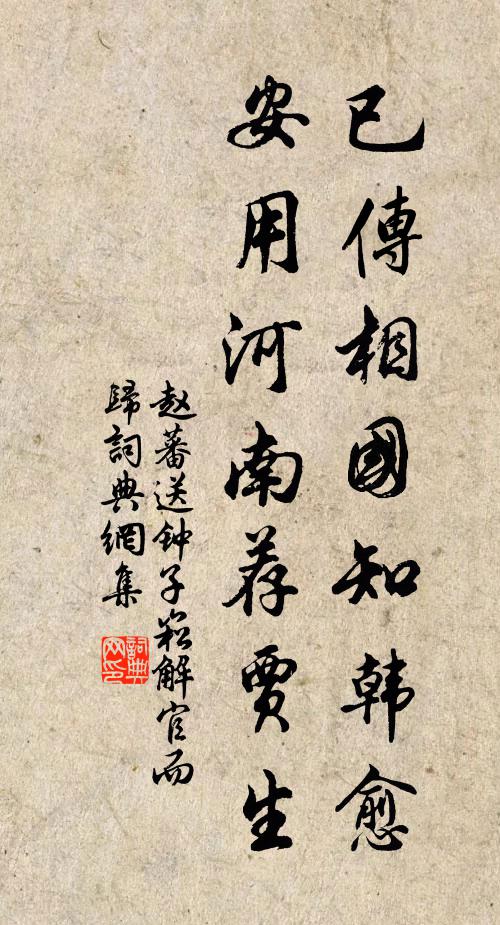 已傳相國知韩愈
安用河南荐賈生
赵蕃送钟子崧解官而
歸詞典網集
詞典
网印